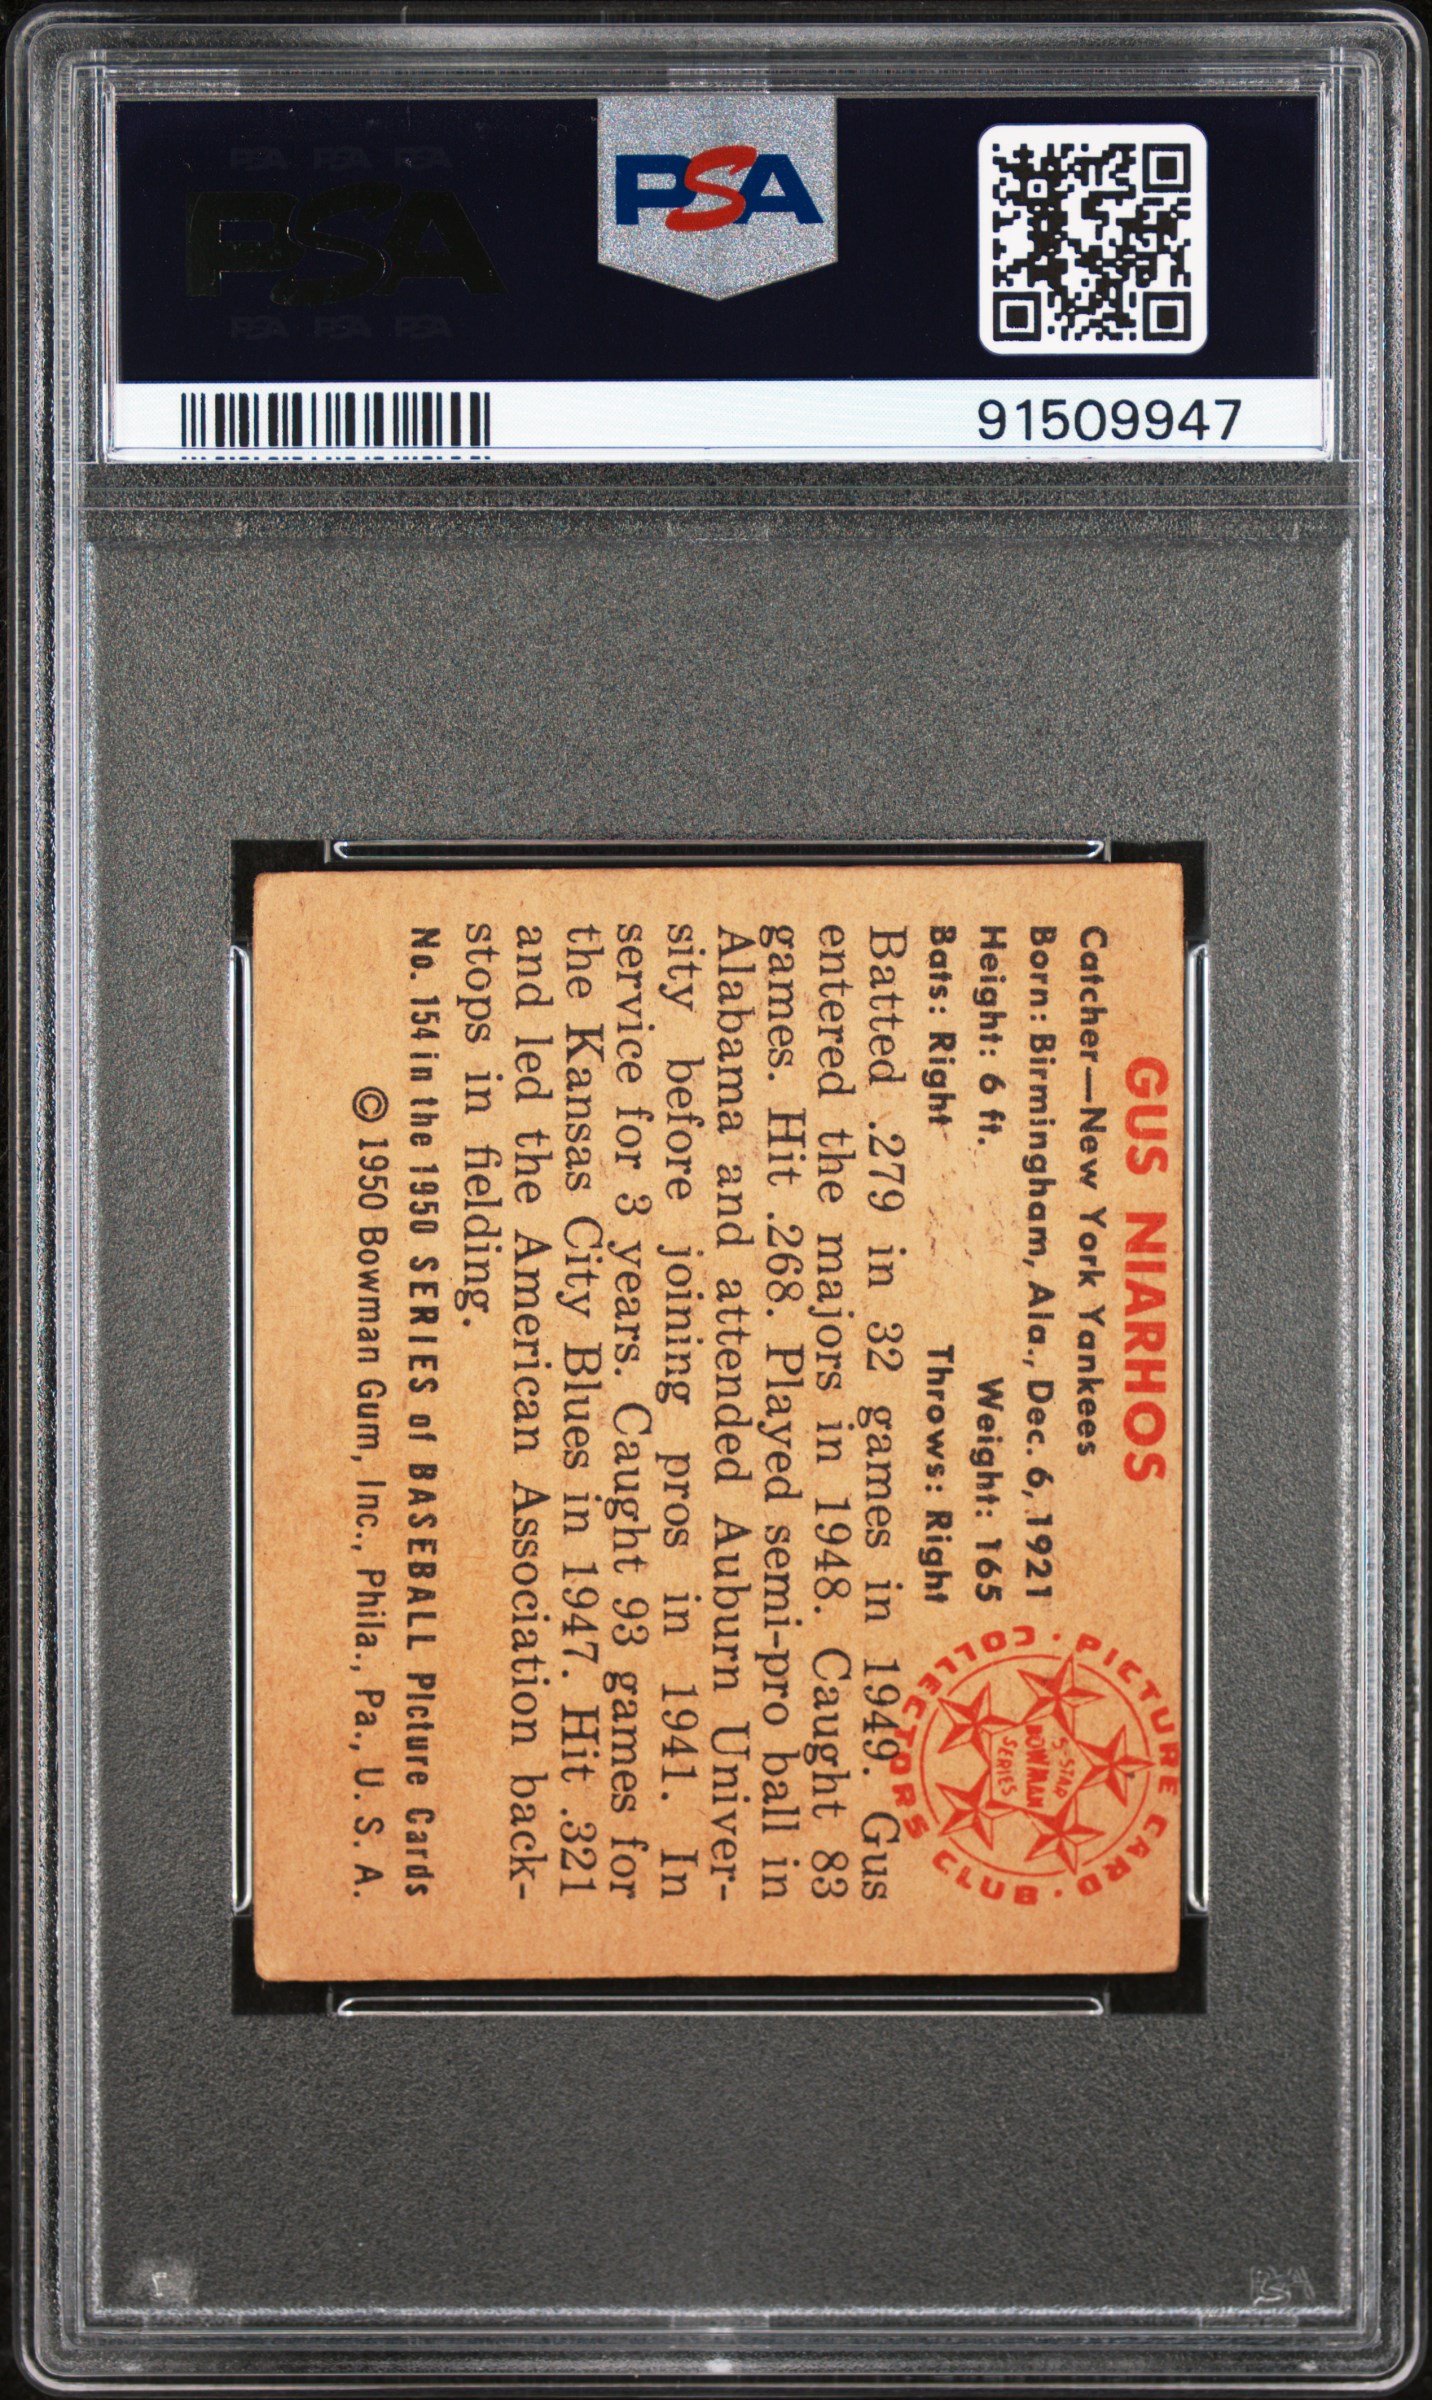 PSA PSA PSA
PSA
PSA PSA PSA
PSA
91509947
GUS NIARHOS
Catcher—New York Yankees
Born: Birmingham, Ala., Dec. 6, 1921
Height: 6 ft. Weight: 165
Bats: Right Throws: Right
Batted .279 in 32 games in 1949. Gus
entered the majors in 1948. Caught 83
games. Hit .268. Played semi-pro ball in
Alabama and attended Auburn Univer-
sity before joining pros in 1941. In
service for 3 years. Caught 93 games for
the Kansas City Blues in 1947. Hit .321
and led the American Association back-
stops in fielding.
No. 154 in the 1950 SERIES of BASEBALL PIcture Cards
© 1950 Bowman Gum, Inc., Phila., Pa., U. S. A.
PICTURE CARD · COLLECTORS CLUB ·
5-STAR
BOWMAN
SERIES
PSA